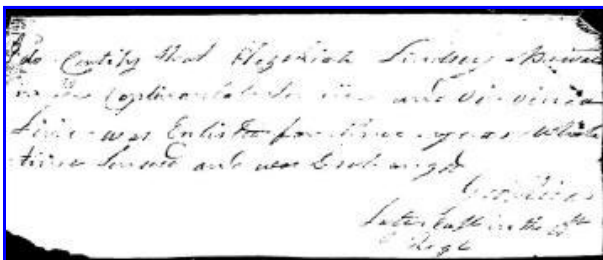 I do Certify that Hezekiah Lindsey
in the Continental and Virginia
Line was Enlisted for three years which
time served and was discharged
Late Capt in the
Regt